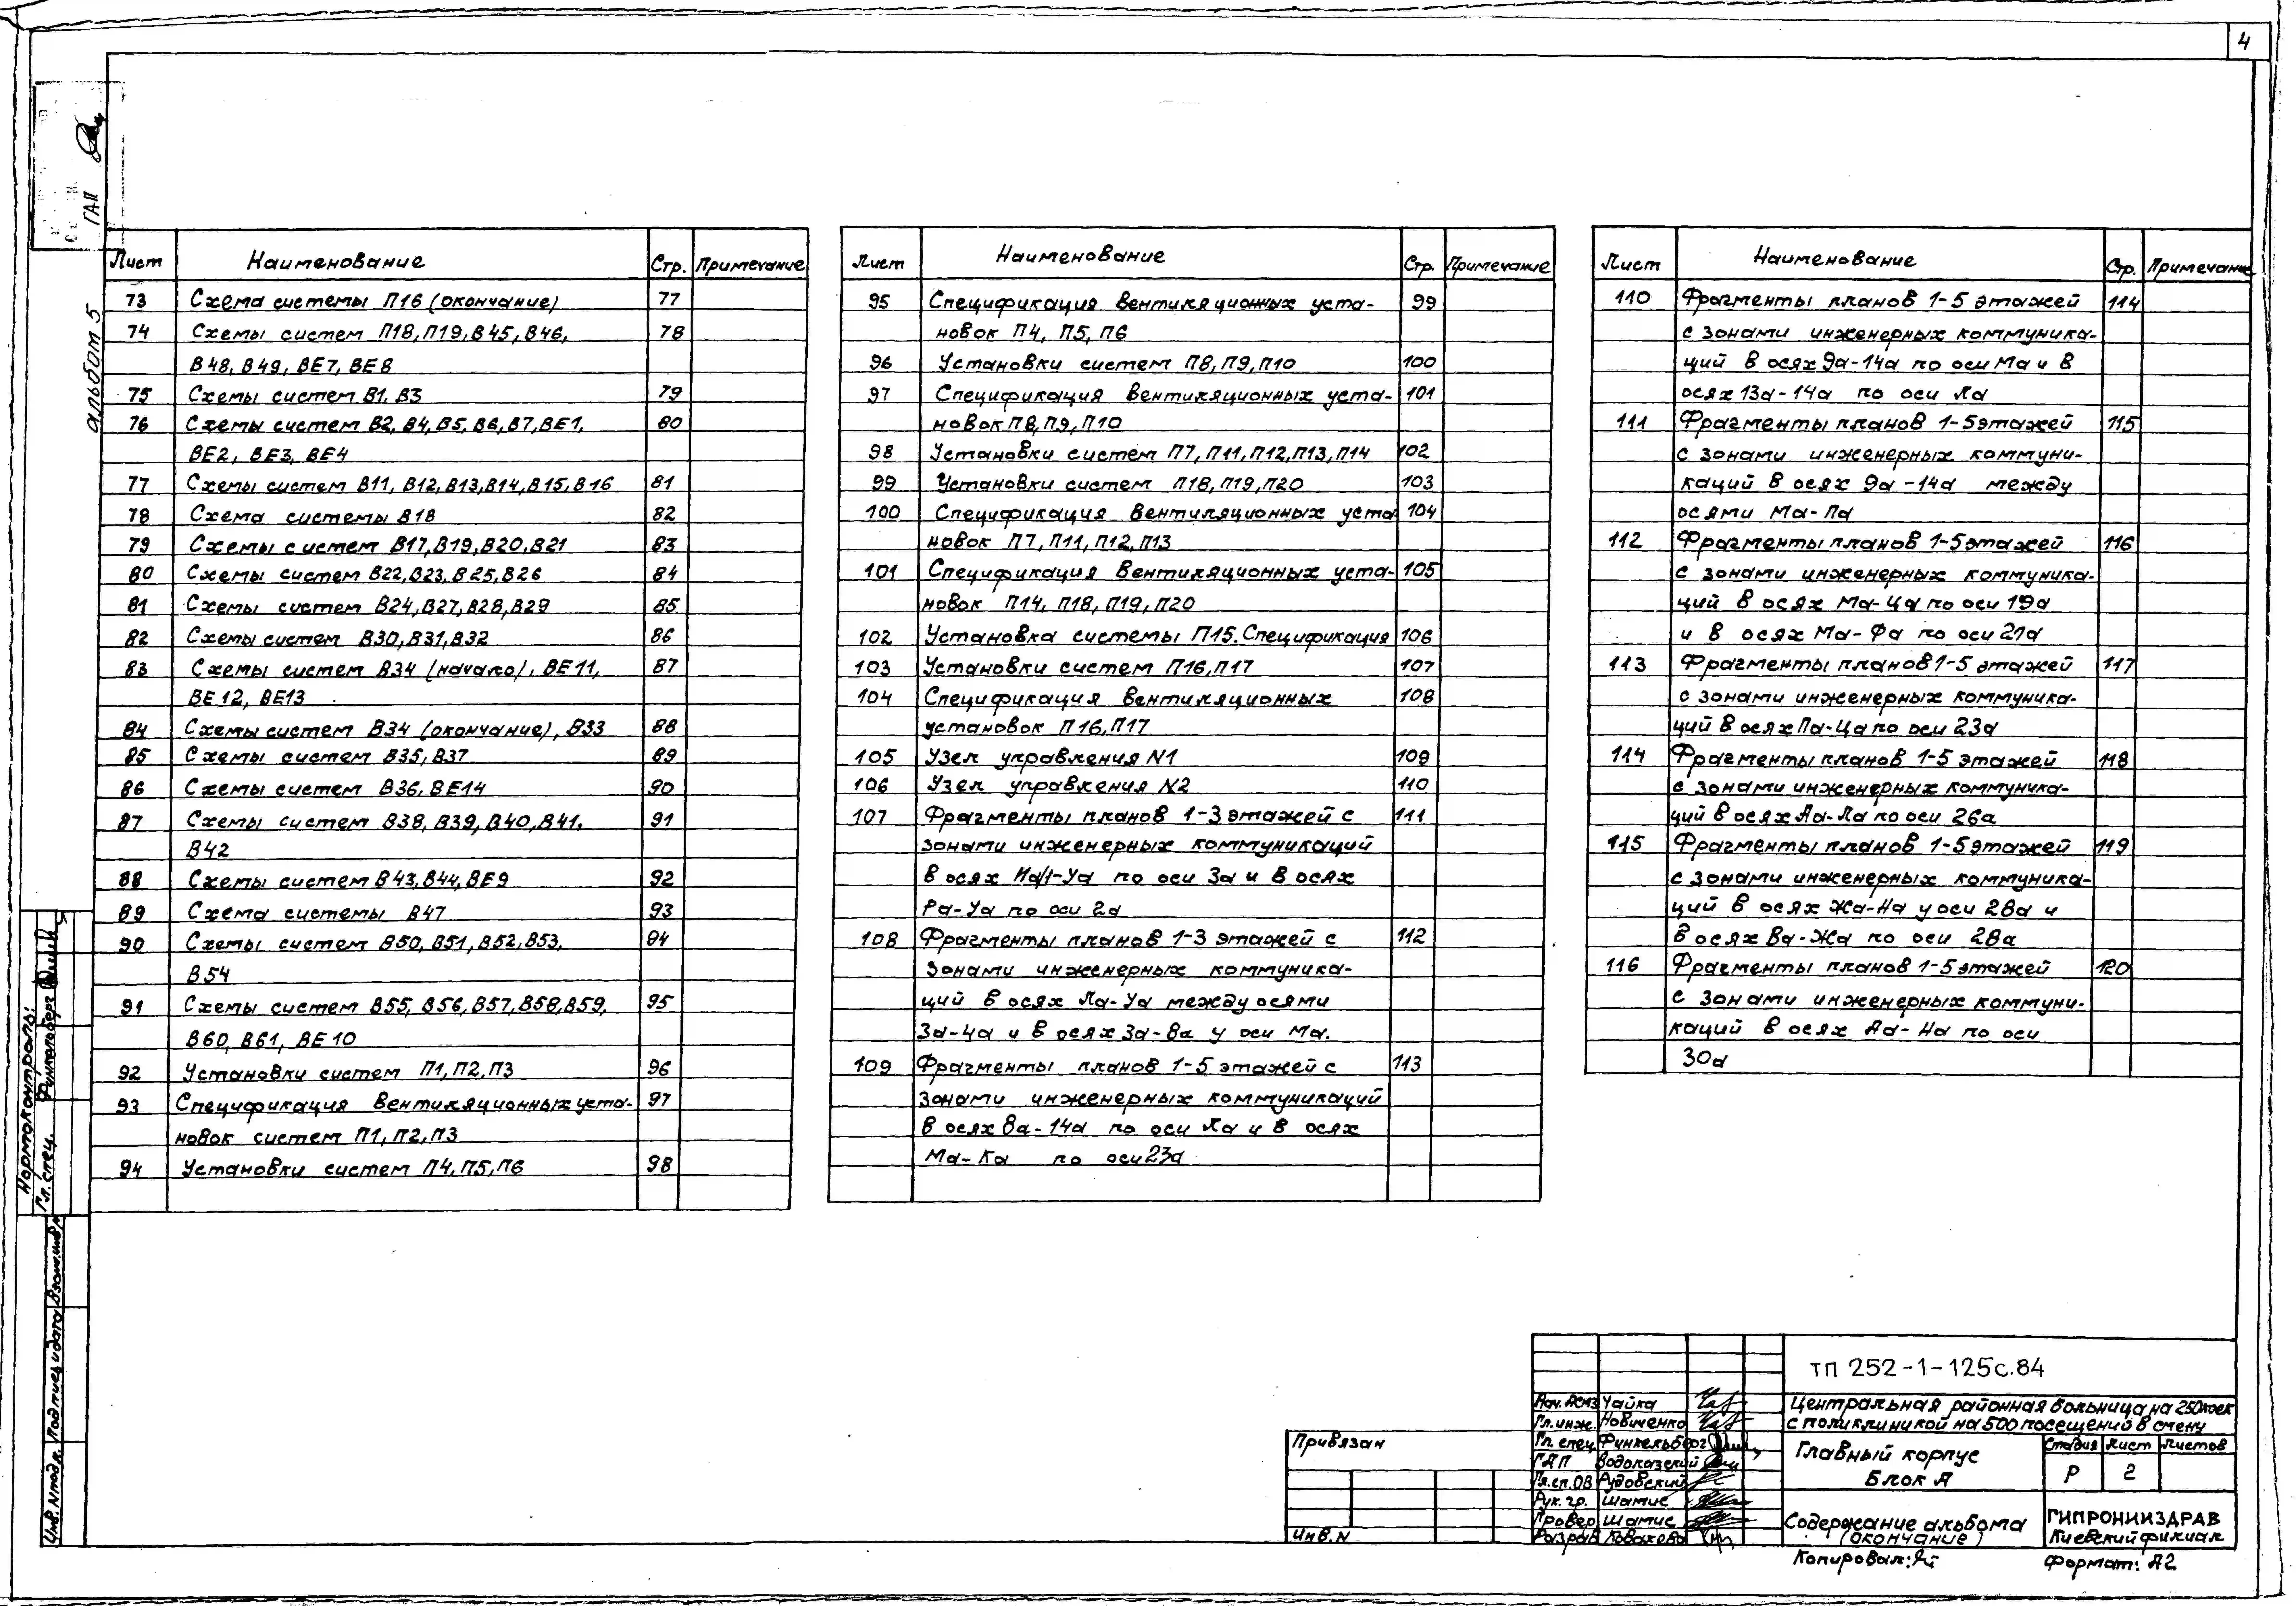 4
ГАП
альбом 5
Лист Наименование Стр. Примечание
73 Схема системы П16 (окончание) 77
74 Схемы систем П18, П19, В45, В46, 78
В48, В49, ВЕ7, ВЕ8
75 Схемы систем В1, В3 79
76 Схемы систем В2, В4, В5, В6, В7, ВЕ1, 80
ВЕ2, ВЕ3, ВЕ4
77 Схемы систем В11, В12, В13, В14, В15, В16 81
78 Схема системы В18 82
79 Схемы систем В17, В19, В20, В21 83
80 Схемы систем В22, В23, В25, В26 84
81 Схемы систем В24, В27, В28, В29 85
82 Схемы систем В30, В31, В32 86
83 Схемы систем В34 (начало), ВЕ11, 87
ВЕ12, ВЕ13
84 Схемы систем В34 (окончание), В33 88
85 Схемы систем В35, В37 89
86 Схемы систем В36, ВЕ14 90
87 Схемы систем В38, В39, В40, В41, 91
В42
88 Схемы систем В43, В44, ВЕ9 92
89 Схема системы В47 93
90 Схемы систем В50, В51, В52, В53, 94
В54
91 Схемы систем В55, В56, В57, В58, В59, 95
В60, В61, ВЕ10
92 Установки систем П1, П2, П3 96
93 Спецификация вентиляционных уста- 97
новок систем П1, П2, П3
94 Установки систем П4, П5, П6 98
Лист Наименование Стр. Примечание
95 Спецификация вентиляционных уста- 99
новок П4, П5, П6
96 Установки систем П8, П9, П10 100
97 Спецификация вентиляционных уста- 101
новок П8, П9, П10
98 Установки систем П7, П11, П12, П13, П14 102
99 Установки систем П18, П19, П20 103
100 Спецификация вентиляционных уста 104
новок П7, П11, П12, П13
101 Спецификация вентиляционных уста- 105
новок П14, П18, П19, П20
102 Установка системы П15. Спецификация 106
103 Установки систем П16, П17 107
104 Спецификация вентиляционных 108
установок П16, П17
105 Узел управления N1 109
106 Узел управления N2 110
107 Фрагменты планов 1-3 этажей с 111
зонами инженерных коммуникаций
в осях На/1-Уа по оси 3а и в осях
Ра-Уа по оси 2а
108 Фрагменты планов 1-3 этажей с 112
зонами инженерных коммуника-
ций в осях Ла-Уа между осями
3а-4а и в осях 3а-8а у оси Ма.
109 Фрагменты планов 1-5 этажей с 113
зонами инженерных коммуникаций
в осях 8а-14а по оси Ла и в осях
Ма-Ка по оси 23а
Лист Наименование Стр. Примечание
110 Фрагменты планов 1-5 этажей 114
с зонами инженерных коммуника-
ций в осях 9а-14а по оси Ма и в
осях 13а-14а по оси Ла
111 Фрагменты планов 1-5 этажей 115
с зонами инженерных коммуни-
каций в осях 9а-14а между
осями Ма-Па
112 Фрагменты планов 1-5 этажей 116
с зонами инженерных коммуника-
ций в осях Ма-Ца по оси 19а
и в осях Ма-Фа по оси 21а
113 Фрагменты планов 1-5 этажей 117
с зонами инженерных коммуника-
ций в осях Па-Ца по оси 23а
114 Фрагменты планов 1-5 этажей 118
с зонами инженерных коммуника-
ций в осях Аа-Ла по оси 26а
115 Фрагменты планов 1-5 этажей 119
с зонами инженерных коммуника-
ций в осях Жа-На у оси 28а и
в осях Ва-Жа по оси 28а
116 Фрагменты планов 1-5 этажей 120
с зонами инженерных коммуни-
каций в осях Аа-На по оси
30а
Нормоконтроль:
Гл. спец. Функельберг
Инв. N подл. Подпись и дата Взам. инв. N
Привязан
Инв. N
ТП 252-1-125с.84
Нач. АСМЗ Чайка
Гл. инж. Новиченко
Гл. спец. Финкельберг
ГАП Водолазский
Гл. сп. ОВ Рудовский
Рук. гр. Шатис
Провер Шатис
Разраб Ковалева
Центральная районная больница на 250 коек
с поликлиникой на 500 посещений в смену
Главный корпус
Блок А
Стадия Лист Листов
Р 2
Содержание альбома
(окончание)
ГИПРОНИИЗДРАВ
Киевский филиал
Копировал:
Формат: А2